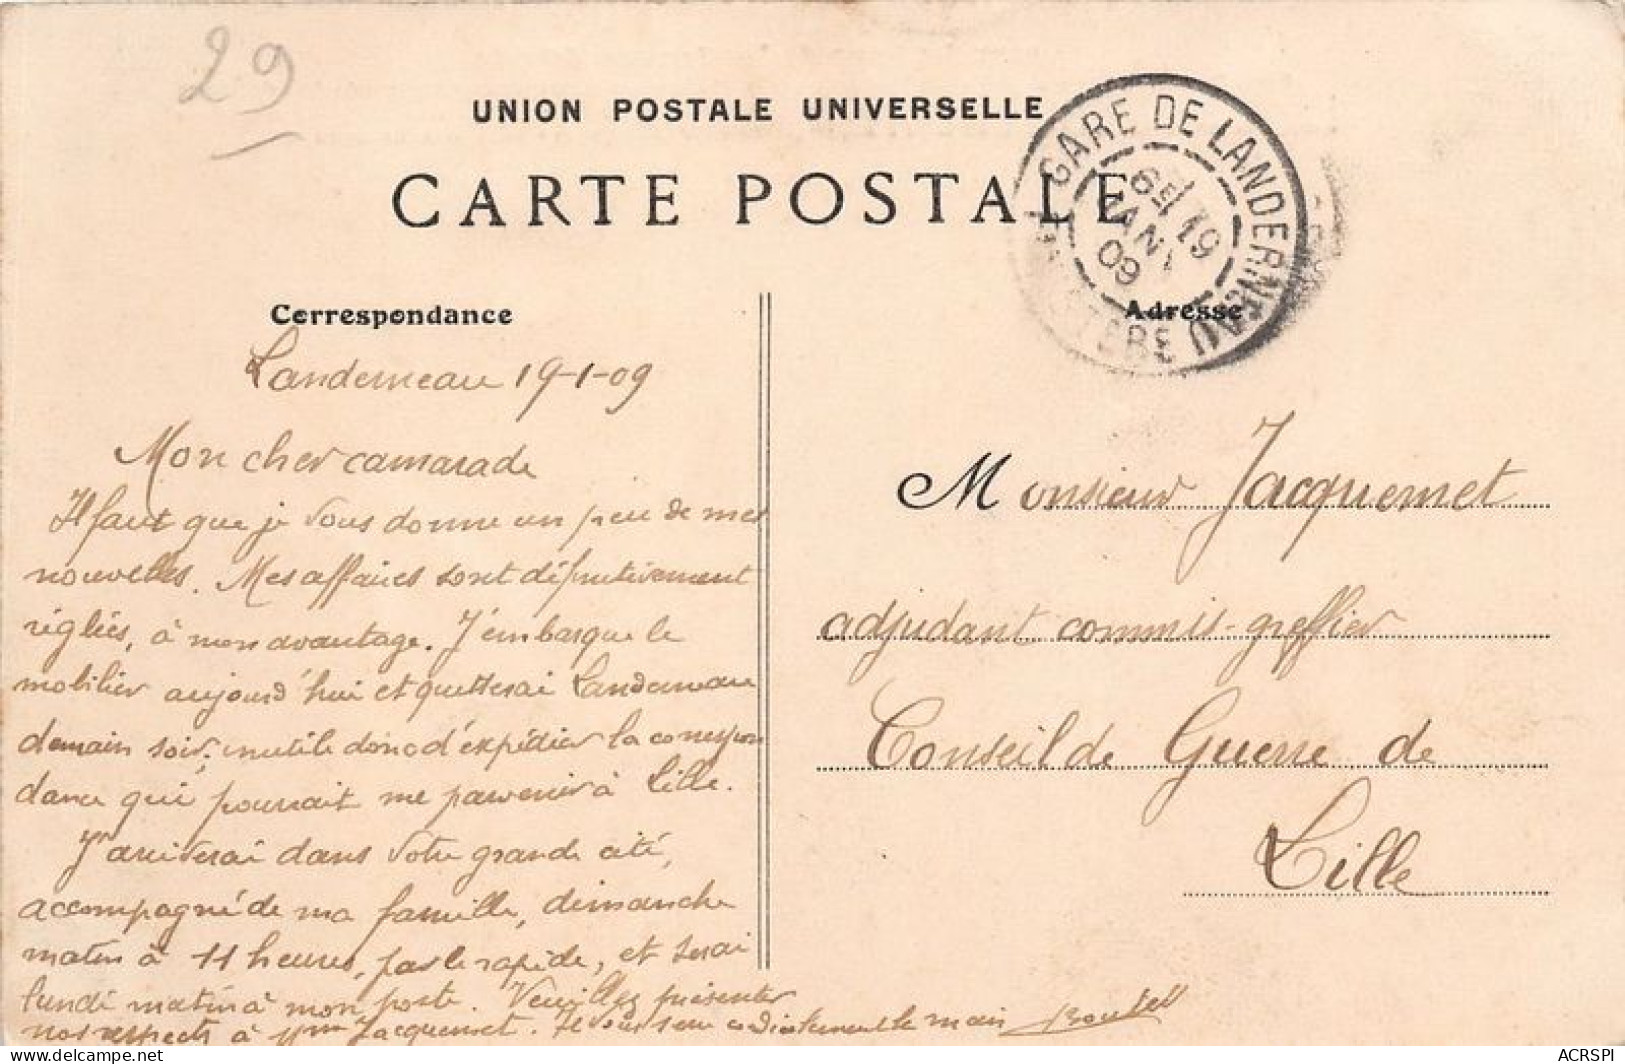 29
UNION POSTALE UNIVERSELLE
CARTE POSTALE
GARE DE LANDERNEAU
6E 19
JANV
09
FINISTERE
Correspondance
Landerneau 19-1-09
Mon cher camarade
Il faut que je vous donne un peu de mes
nouvelles. Mes affaires sont définitivement
réglées, à mon avantage. J'embarque le
mobilier aujourd'hui et quitterai Landerneau
demain soir; inutile donc d'expédier la correspon
dance qui pourrait me parvenir à Lille.
J'arriverai dans votre grande cité,
accompagné de ma famille, dimanche
matin à 11 heures, par le rapide, et serai
lundi matin à mon poste. Veuillez présenter
nos respects à Mme Jacquemet. Je vous serre cordialement la main
Adresse
Monsieur Jacquemet
adjudant commis-greffier
Conseil de Guerre de
Lille
ACRSPI